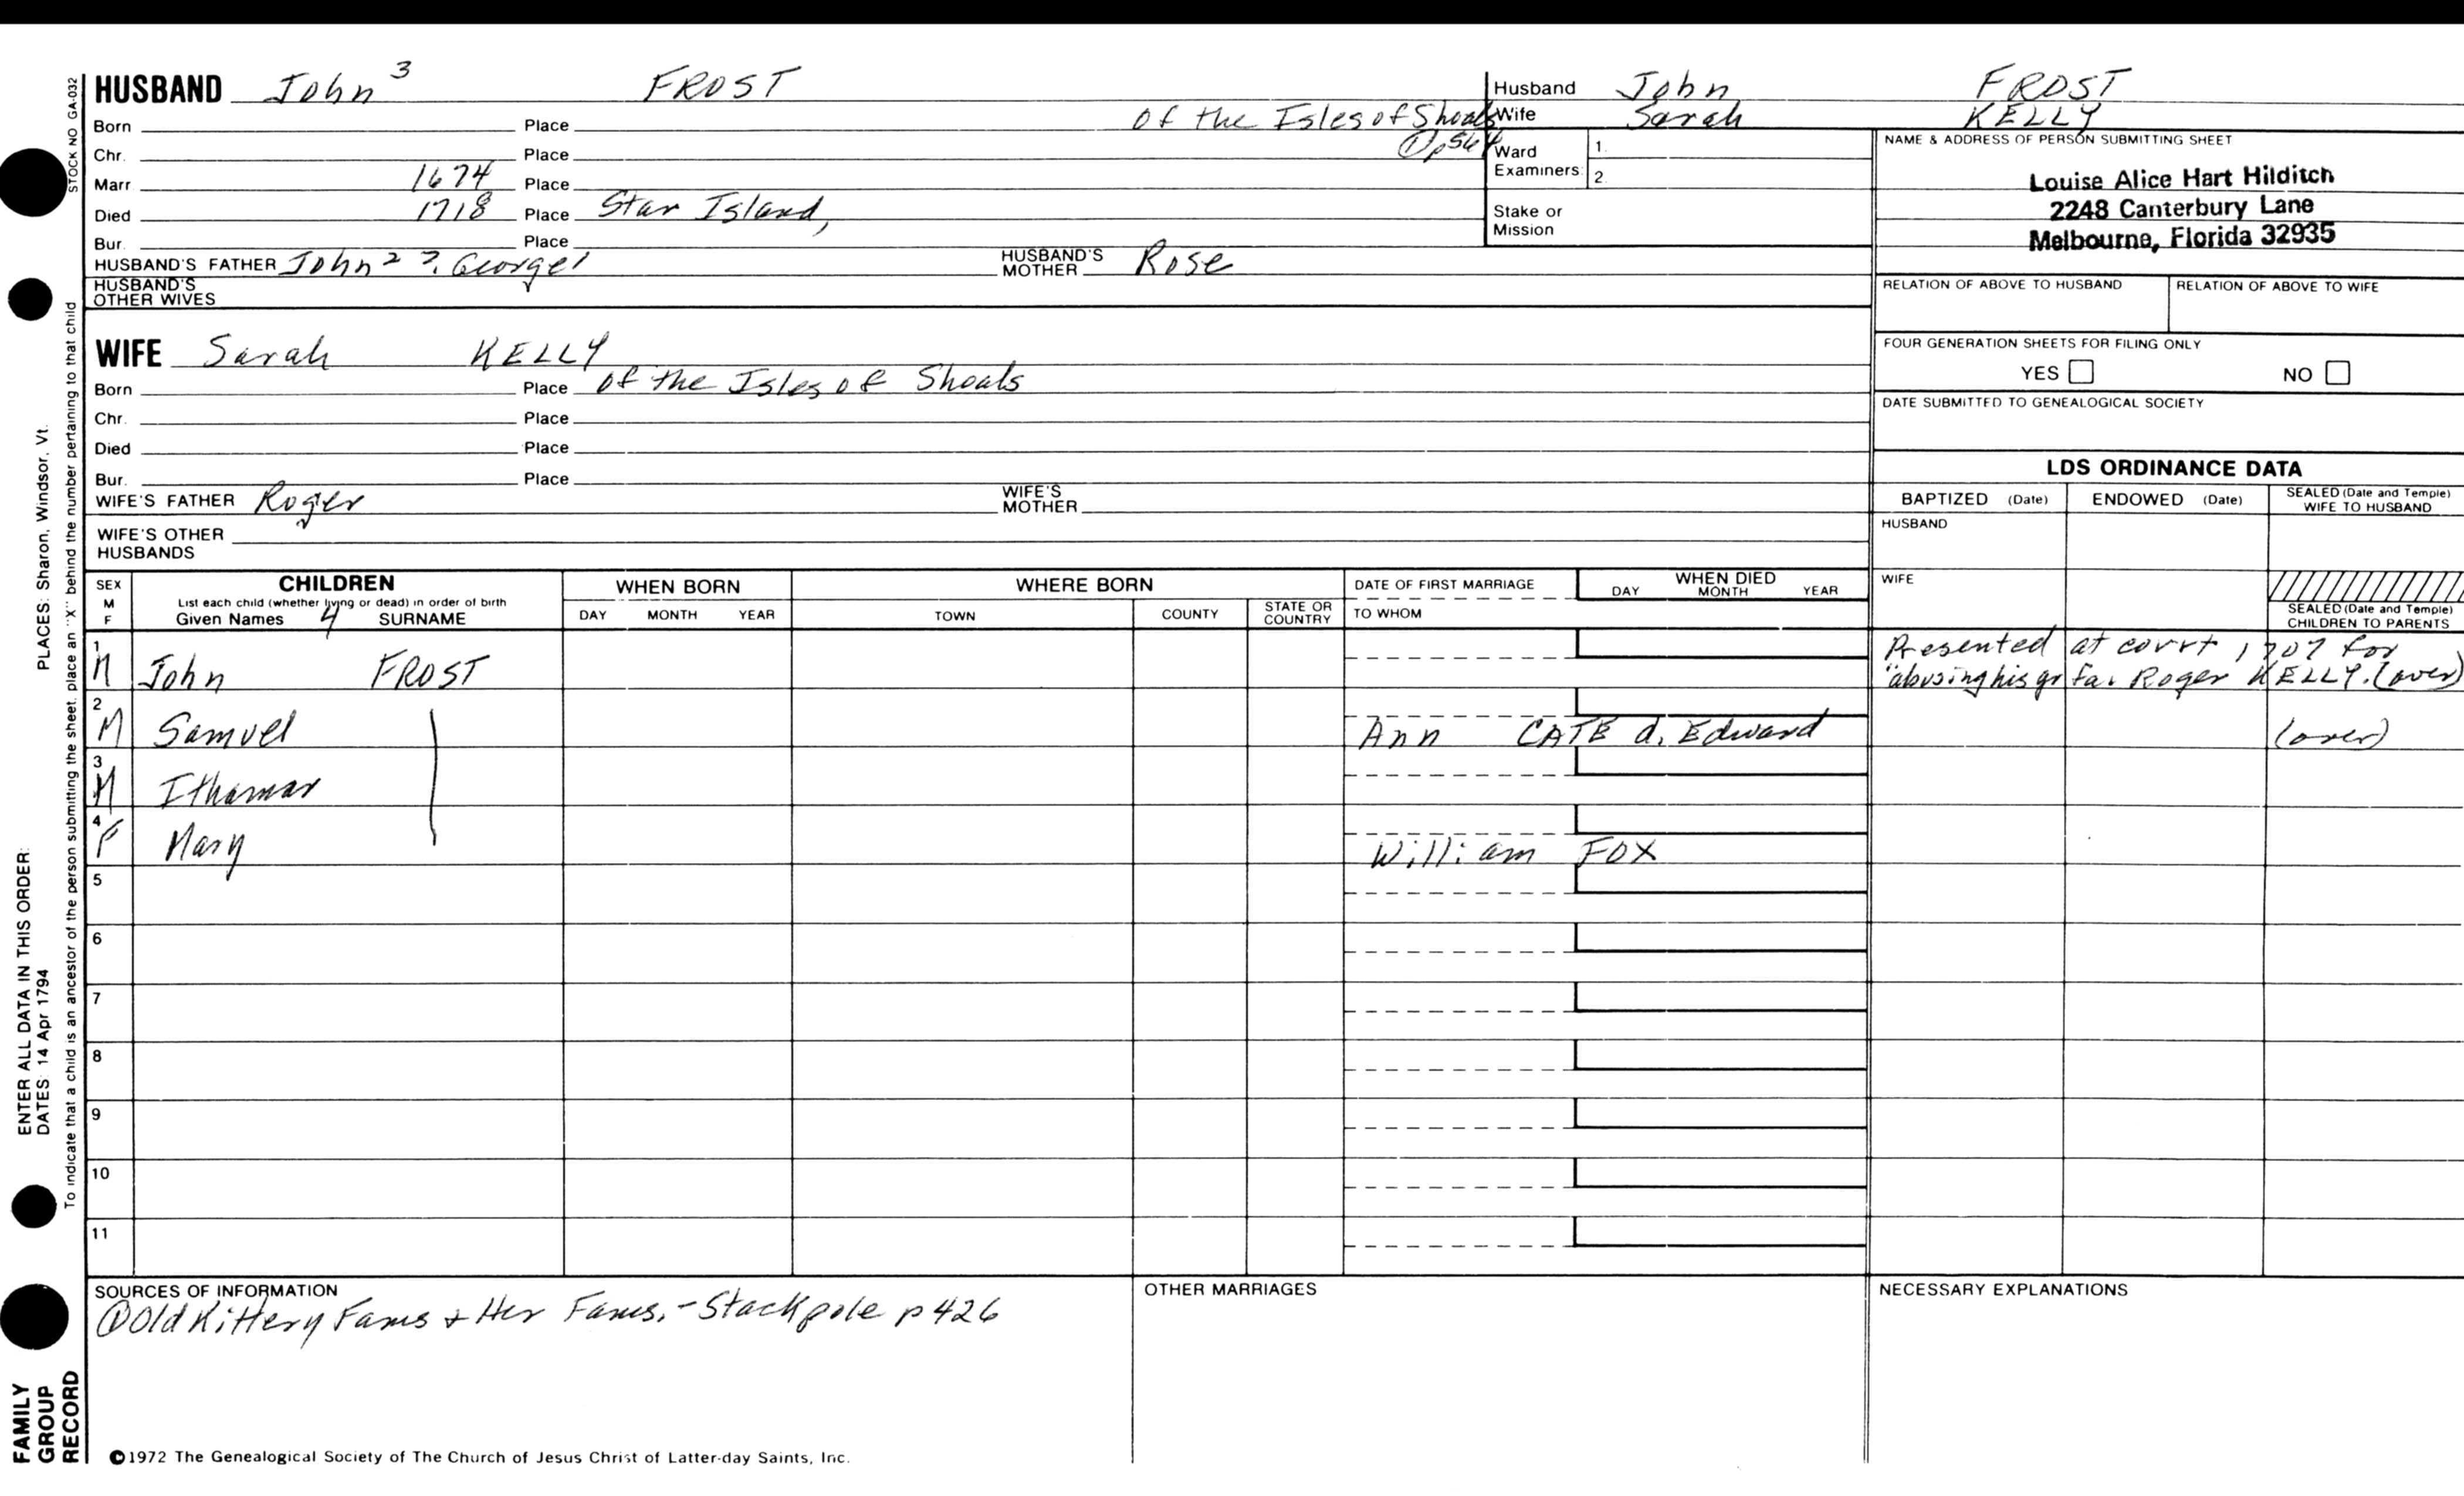 HUSBAND John 3 FROST
Born Place of the Isles of Shoals
① p 564
Chr. Place
Marr 1674 Place
Died 1718 Place Star Island,
Bur. Place
HUSBAND'S FATHER John 2 ?, George 1 HUSBAND'S MOTHER Rose
HUSBAND'S OTHER WIVES
Husband John FROST
Wife Sarah KELLY
Ward Examiners 1. 2.
Stake or Mission
NAME & ADDRESS OF PERSON SUBMITTING SHEET
Louise Alice Hart Hilditch
2248 Canterbury Lane
Melbourne, Florida 32935
RELATION OF ABOVE TO HUSBAND RELATION OF ABOVE TO WIFE
FOUR GENERATION SHEETS FOR FILING ONLY
YES NO
DATE SUBMITTED TO GENEALOGICAL SOCIETY
WIFE Sarah KELLY
Born Place of the Isles of Shoals
Chr. Place
Died Place
Bur. Place
WIFE'S FATHER Roger WIFE'S MOTHER
WIFE'S OTHER HUSBANDS
LDS ORDINANCE DATA
BAPTIZED (Date) ENDOWED (Date) SEALED (Date and Temple) WIFE TO HUSBAND
HUSBAND
WIFE
SEALED (Date and Temple) CHILDREN TO PARENTS
SEX M F
CHILDREN
List each child (whether living or dead) in order of birth
Given Names 4 SURNAME
WHEN BORN
DAY MONTH YEAR
WHERE BORN
TOWN COUNTY STATE OR COUNTRY
DATE OF FIRST MARRIAGE
TO WHOM
WHEN DIED
DAY MONTH YEAR
1 M John FROST Presented at court 1707 for
"abusing his gr fa. Roger KELLY. (over)
2 M Samuel Ann CATE d. Edward (over)
3 M Ithamar
4 F Mary William FOX
5
6
7
8
9
10
11
SOURCES OF INFORMATION
① Old Kittery Fams + Her Fams. - Stackpole p 426
OTHER MARRIAGES
NECESSARY EXPLANATIONS
©1972 The Genealogical Society of The Church of Jesus Christ of Latter-day Saints, Inc.
STOCK NO GA-032
To indicate that a child is an ancestor of the person submitting the sheet, place an "X" behind the number pertaining to that child
PLACES: Sharon, Windsor, Vt.
ENTER ALL DATA IN THIS ORDER:
DATES: 14 Apr 1794
FAMILY
GROUP
RECORD